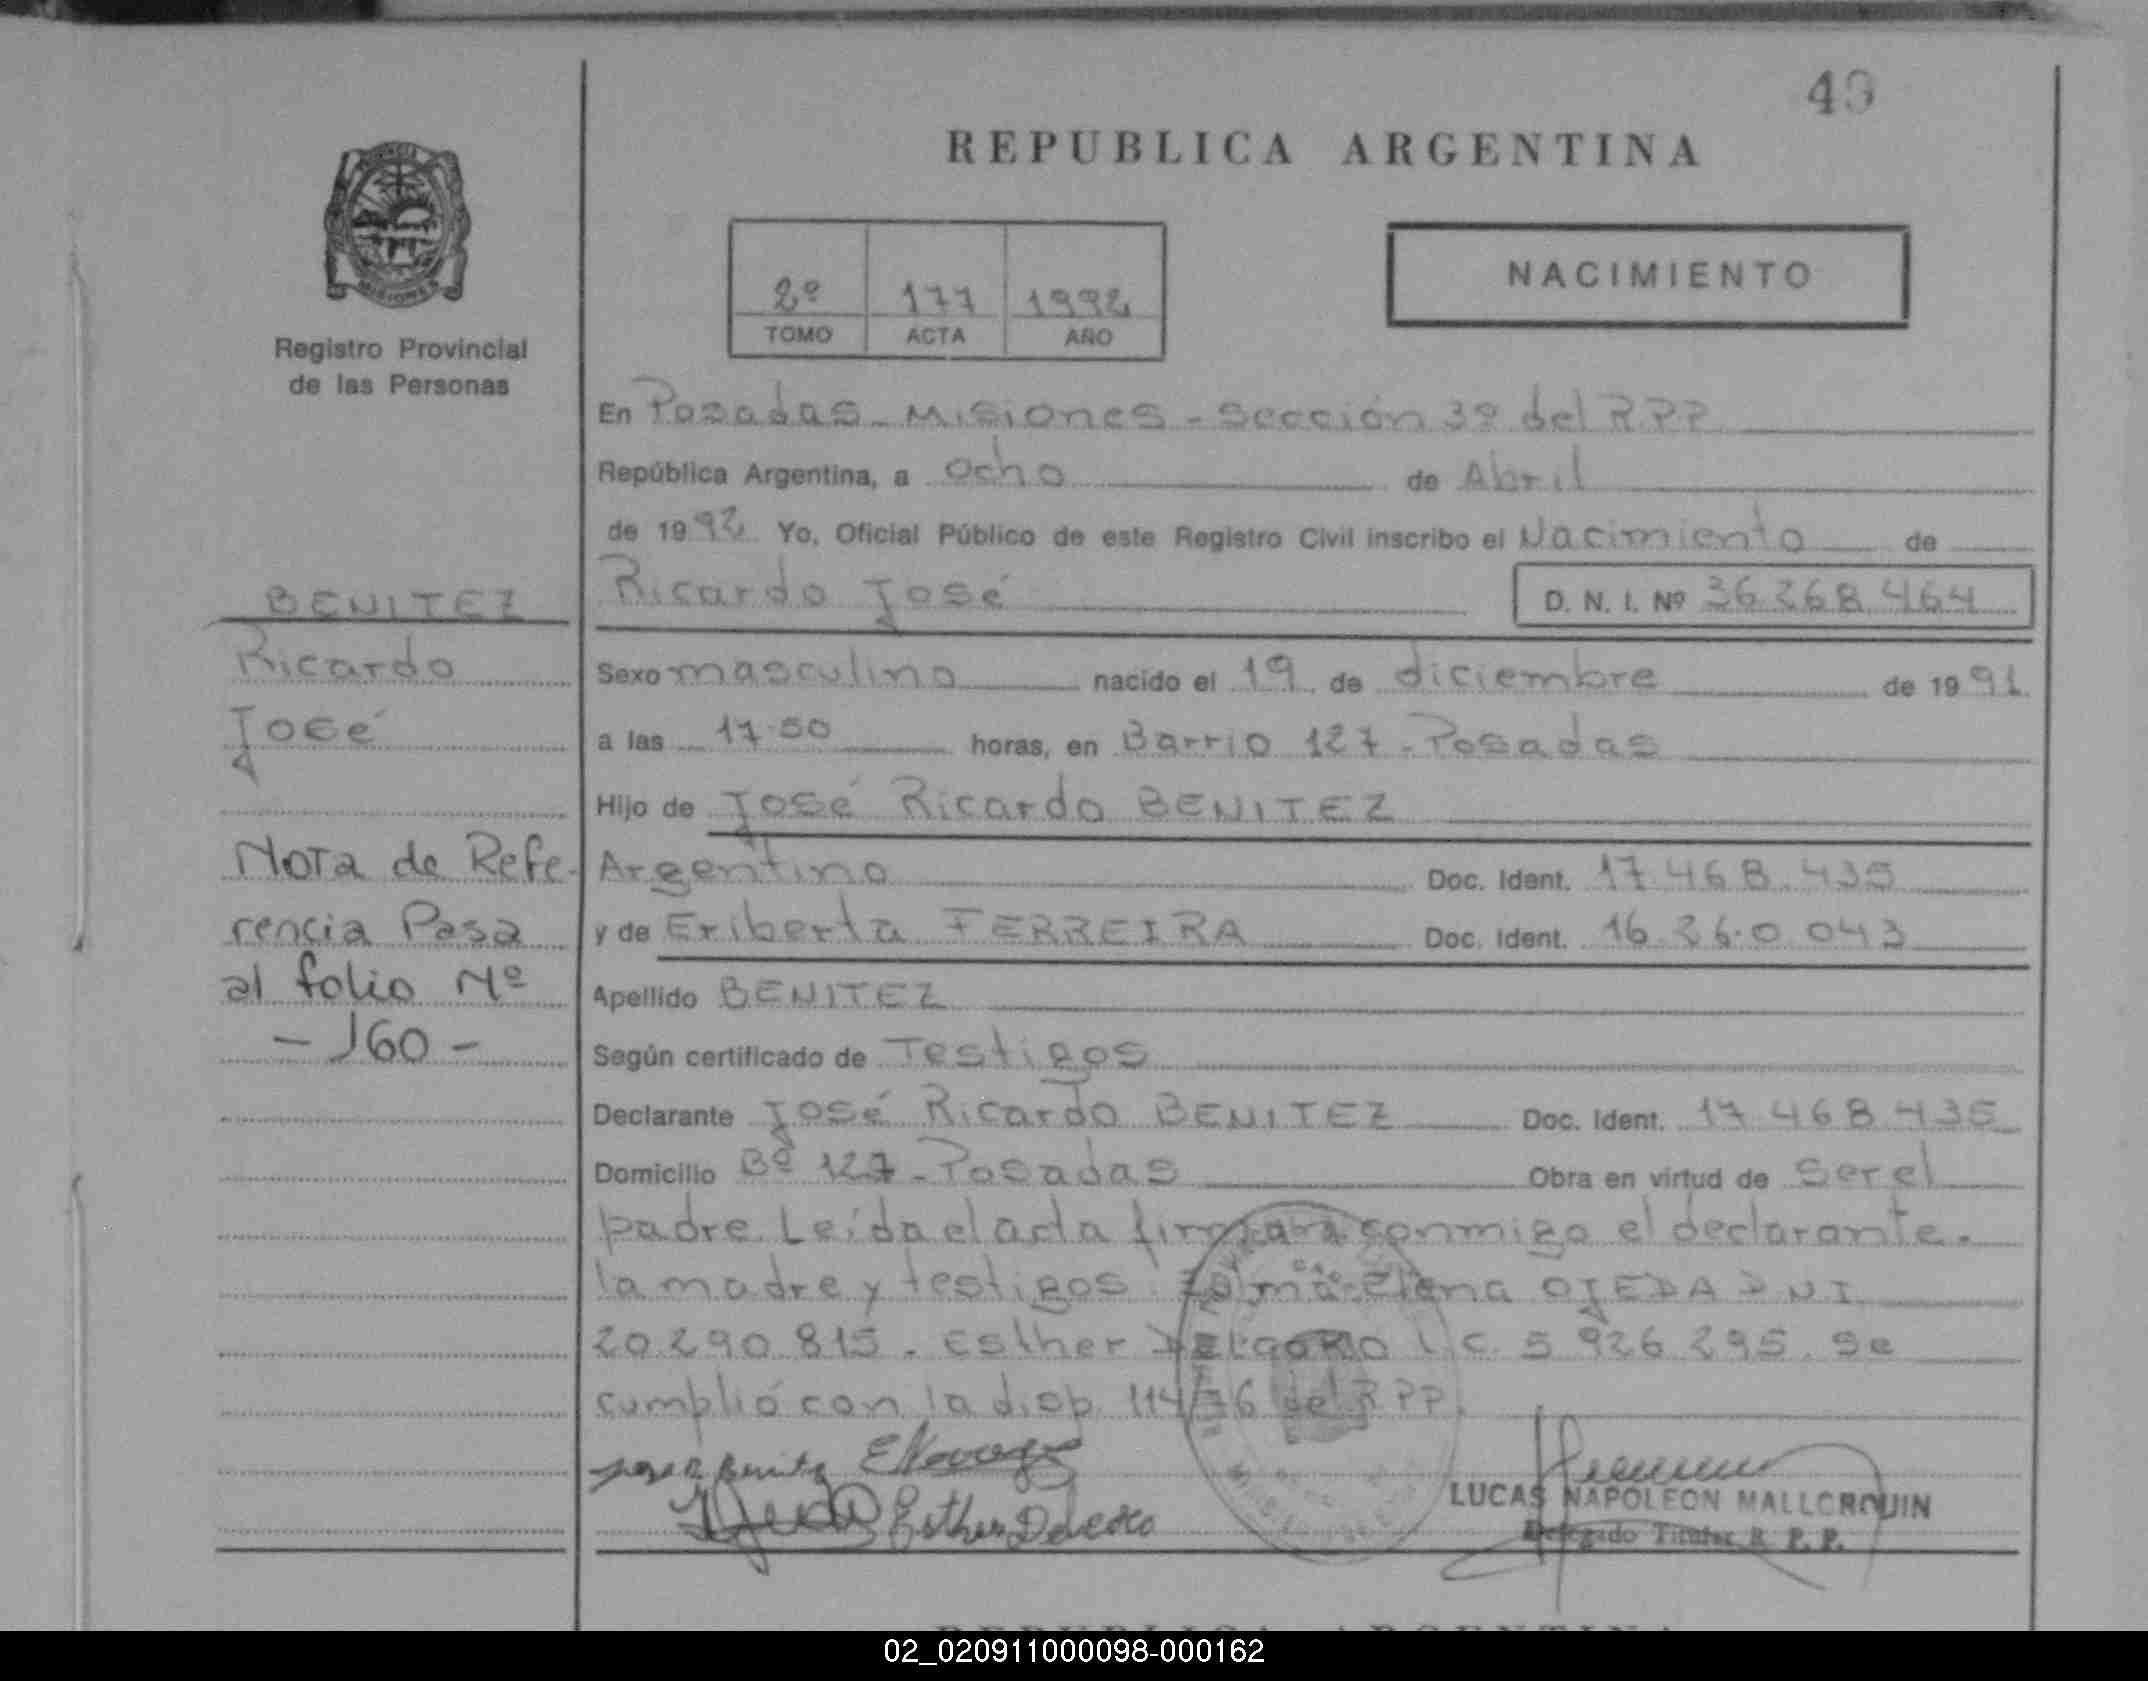 49
REPUBLICA ARGENTINA
PROVINCIA
MISIONES
Registro Provincial
de las Personas
2º 177 1992
TOMO ACTA AÑO
NACIMIENTO
En Posadas - Misiones - Sección 3º del R.P.P.
República Argentina, a ocho de Abril
de 1992 Yo, Oficial Público de este Registro Civil inscribo el Nacimiento de
Ricardo José D. N. I. Nº 36.268.464
Sexo masculino nacido el 19 de diciembre de 1991
a las 17.50 horas, en Barrio 127 - Posadas
Hijo de José Ricardo BENITEZ
Argentino Doc. Ident. 17.468.435
y de Eriberta FERREIRA Doc. Ident. 16.26.0.043
Apellido BENITEZ
Según certificado de Testigos
Declarante José Ricardo BENITEZ Doc. Ident. 17.468.435
Domicilio Bº 127 - Posadas Obra en virtud de ser el
padre. Leída el acta firman conmigo el declarante.
la madre y testigos: Elena OJEDA D.N.I.
20.290.815. Esther DELGADO L.C. 5.926.295. Se
cumplió con la disp. 114/76 del R.P.P.
BENITEZ
Ricardo
José
Nota de Refe-
rencia Pasa
al folio Nº
- 160 -
LUCAS NAPOLEON MALLORQUIN
Delegado Titular R. P. P.
REPUBLICA ARGENTINA
02_020911000098-000162